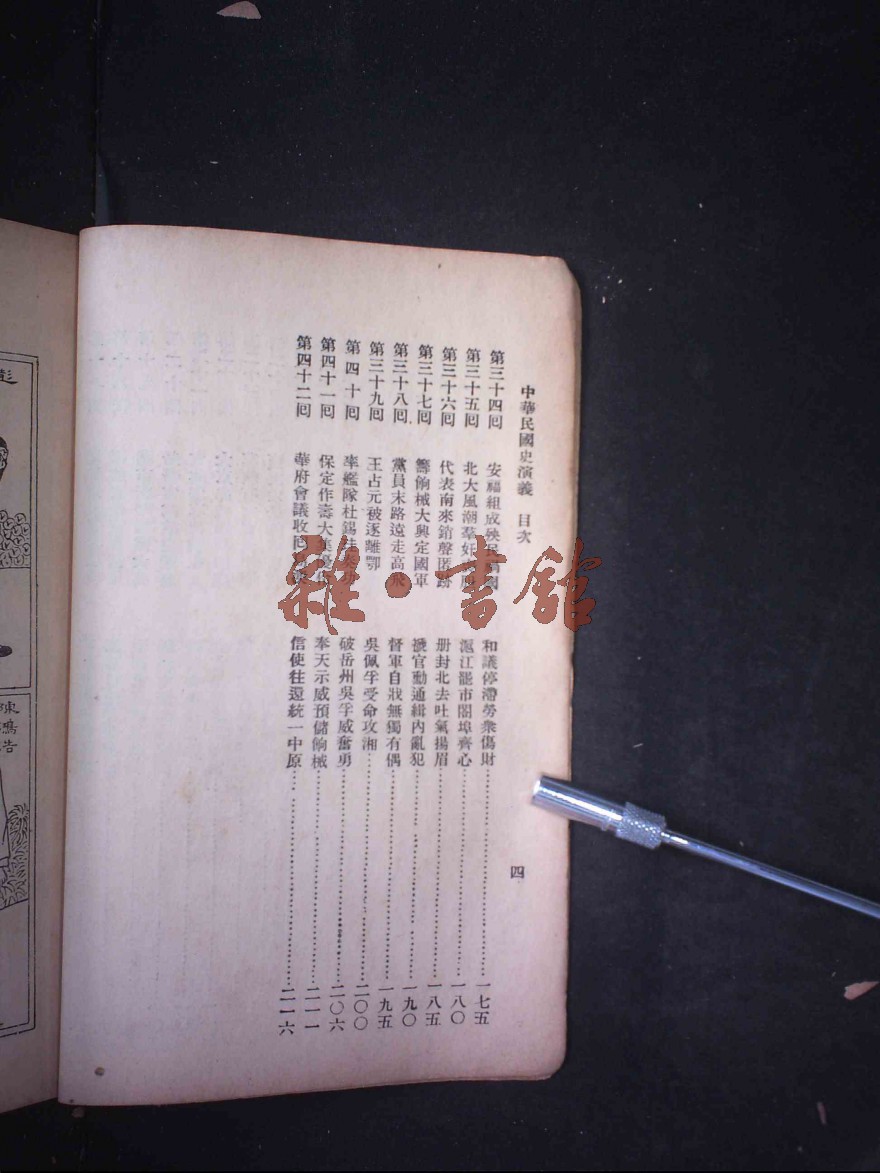 中華民國史演義 目次
四
第三十四囘 安福組成殃民禍國 和議停滯勞衆傷財 一七五
第三十五囘 北大風潮羣奸 滬江罷市闔埠齊心 一八〇
第三十六囘 代表南來銷聲匿跡 册封北去吐氣揚眉 一八五
第三十七囘 籌餉械大興定國軍 褫官勳通緝內亂犯 一九〇
第三十八囘 黨員末路遠走高飛 督軍自戕無獨有偶 一九五
第三十九囘 王占元被逐離鄂 吳佩孚受命攻湘 二〇〇
第四十囘 率艦隊杜錫珪 破岳州吳孚威奮勇 二〇六
第四十一囘 保定作壽大集優伶 奉天示威預儲餉械 二一一
第四十二囘 華府會議收囘 信使往還統一中原 二一六
雜·書館
彭
陳